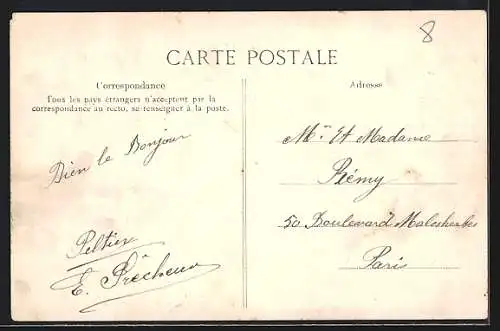 8
CARTE POSTALE
Correspondance
Tous les pays étrangers n'acceptent pas la
correspondance au recto, se renseigner à la poste.
Bien le Bonjour
Peltier
E. Prêcheur
Adresse
Mr. Et Madame
Rémy
50 Boulevard Malesherbes
Paris